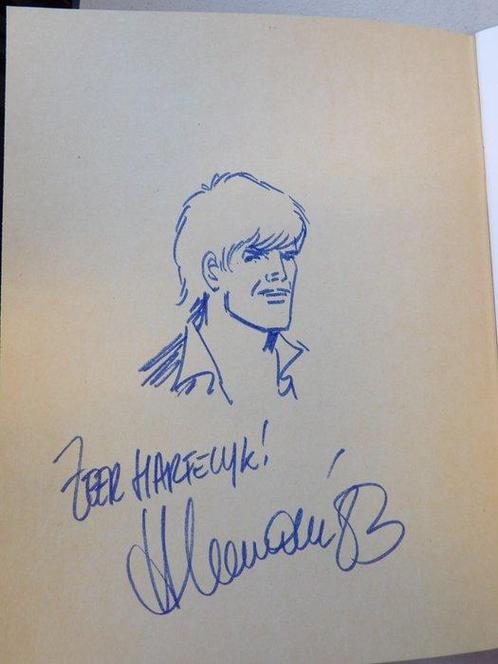 ZEER HARTELIJK!
Hermann '83